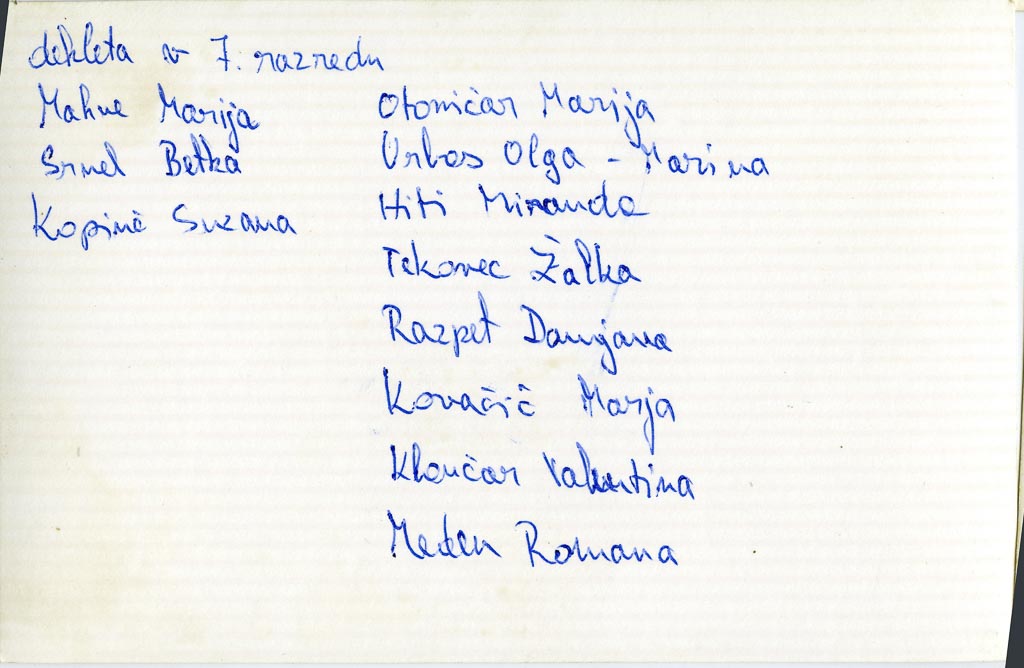 dekleta v 7. razredu
Mahne Marija
Srnel Betka
Kopinč Suzana
Otoničar Marija
Urbas Olga - Marina
Hiti Miranda
Tekavec Žalka
Razpet Damjana
Kovačič Marja
Klančar Valentina
Meden Romana